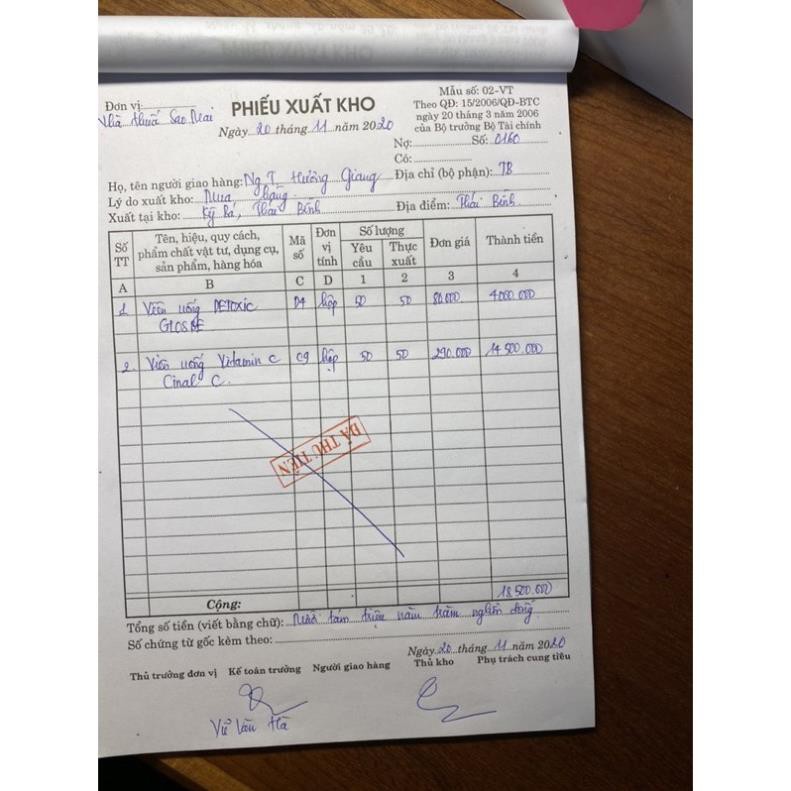 Đơn vị:
Nhà thuốc Sao Mai
PHIẾU XUẤT KHO
Ngày 20 tháng 11 năm 2020
Mẫu số: 02-VT
Theo QĐ: 15/2006/QĐ-BTC
ngày 20 tháng 3 năm 2006
của Bộ trưởng Bộ Tài chính
Nợ: Số: 0160
Có:
Họ, tên người giao hàng: Ng T. Hương Giang Địa chỉ (bộ phận): TB
Lý do xuất kho: Mua hàng
Xuất tại kho: Kỳ Bá, Thái Bình Địa điểm: Thái Bình
Số TT Tên, hiệu, quy cách, phẩm chất vật tư, dụng cụ, sản phẩm, hàng hóa Mã số Đơn vị tính Số lượng Yêu cầu Thực xuất Đơn giá Thành tiền
A B C D 1 2 3 4
1 Viên uống DETOXIC hộp 50 50 80.000 4000.000
2 Viên uống Vitamin C C9 hộp 50 50 290.000 14 500.000
Cinal C
ĐÃ THU TIỀN
Cộng: 18 500.000
Tổng số tiền (viết bằng chữ): Mười tám triệu năm trăm nghìn đồng
Số chứng từ gốc kèm theo:
Ngày 20 tháng 11 năm 2020
Thủ trưởng đơn vị Kế toán trưởng Người giao hàng Thủ kho Phụ trách cung tiêu
Vũ Văn Hà